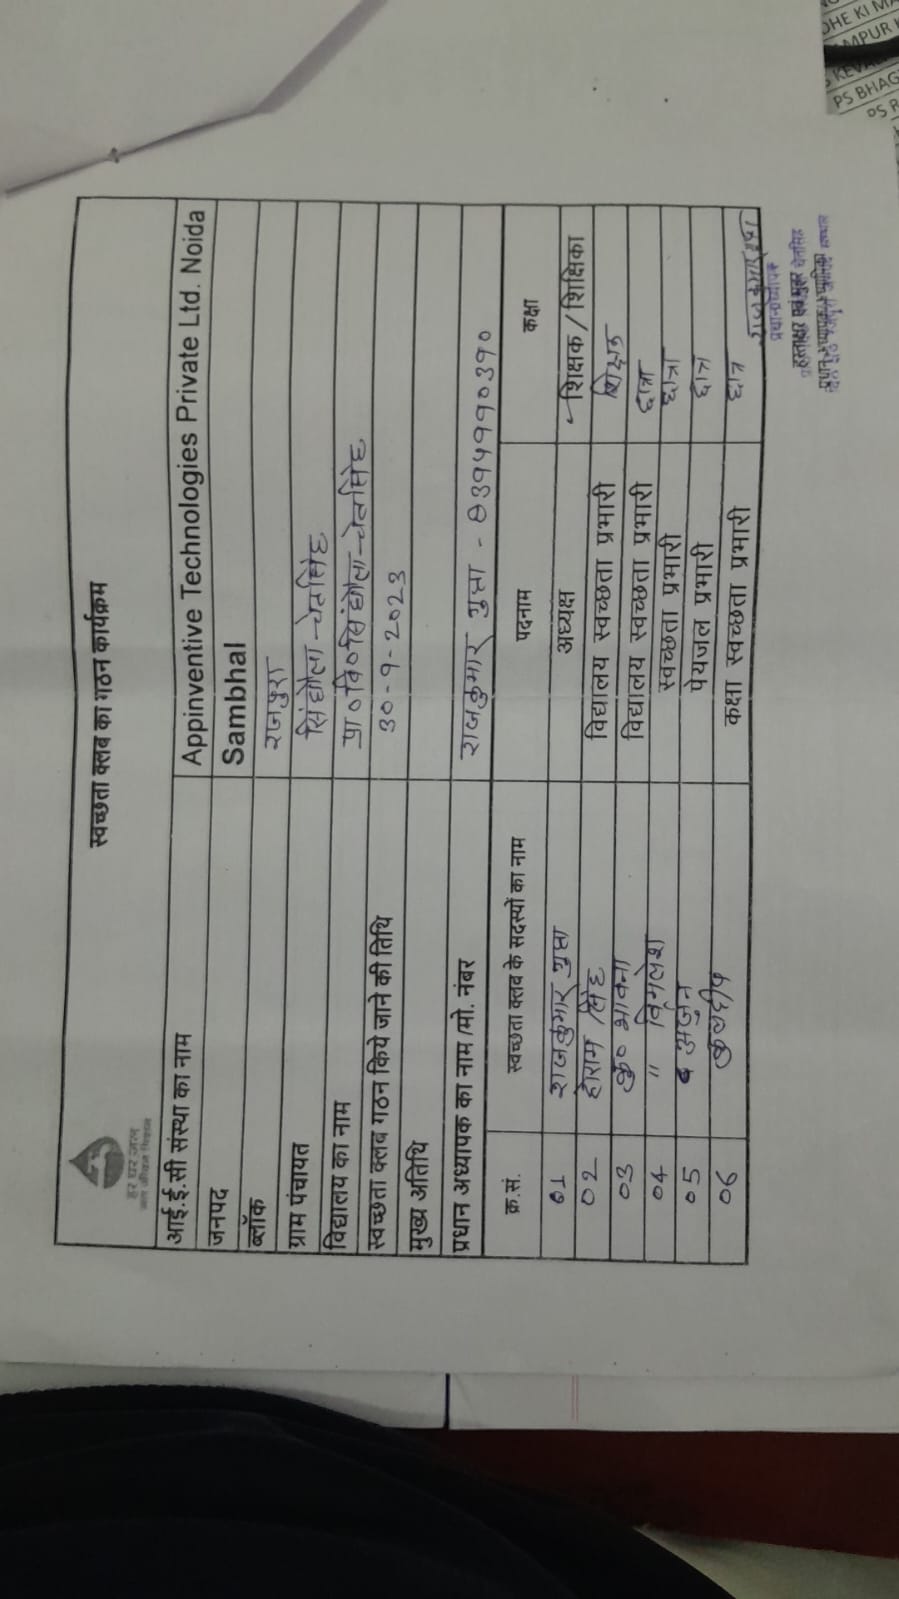 हर घर जल
जल जीवन मिशन
स्वच्छता क्लब का गठन कार्यक्रम
आई.ई.सी संस्था का नाम Appinventive Technologies Private Ltd. Noida
जनपद Sambhal
ब्लॉक रजपुरा
ग्राम पंचायत सिंघौला चेतसिंह
विद्यालय का नाम प्रा०वि०सिंघौला चेतसिंह
स्वच्छता क्लब गठन किये जाने की तिथि ३०-9-2023
मुख्य अतिथि
प्रधान अध्यापक का नाम /मो. नंबर राजकुमार गुप्ता -
क्र.सं. स्वच्छता क्लब के सदस्यों का नाम पदनाम कक्षा
01 राजकुमार गुप्ता अध्यक्ष शिक्षक / शिक्षिका
02 होराम सिंह विद्यालय स्वच्छता प्रभारी शिक्षक
03 कु० भावना विद्यालय स्वच्छता प्रभारी छात्रा
04 " विमलेश स्वच्छता प्रभारी छात्रा
05 अर्जुन पेयजल प्रभारी छात्र
06 कुलदीप कक्षा स्वच्छता प्रभारी छात्र
राजकुमार गुप्ता
प्रधानाध्यापक
हस्ताक्षर एवं मुहर
OHE KI MA
AMPUR
KEVAL
PS BHAG